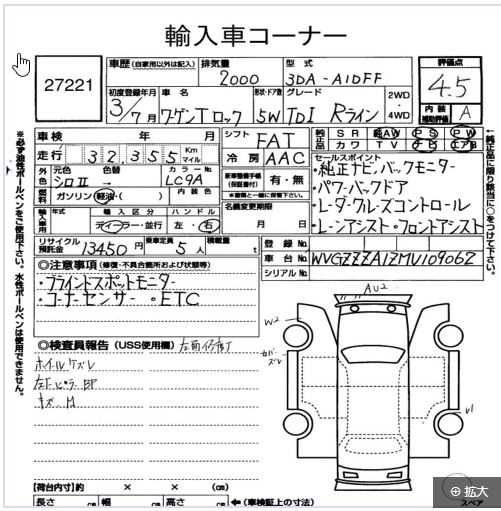 輸入車コーナー
27221
車歴 (自家用以外は記入) 排気量 型式 評価点
2000 3DA-A1DFF 4.5
初度登録年月 車名 形状・ドア数 グレード 2WD
3/7月 ワーゲンTロック 5W TDI Rライン ・4WD
内装補助評価 A
車検 年 月 シフト FAT 純正品 SR AW PS PW
走行 32,355 Km マイル 冷房 AAC カワ TV ナビ エアB
外色 元色 色替 カラーNo. セールスポイント
シロII → LC9A ・純正ナビ、バックモニター
燃料 ガソリン・軽油・( ) 内装色 有・無 ・パワーバックドア
輸入車用 年式 輸入区分 ハンドル 名義変更期限 ・レーダークルーズコントロール
ディーラー・並行 左・右 月 日 ・レーンアシスト・フロントアシスト
リサイクル預託金 13450円 乗車定員 5人 積載量 t 登録No.
車台No. WVGZZZA1ZMV109062
シリアルNo.
◎注意事項 (修復・不具合箇所および状態等)
・ブラインドスポットモニター
・コーナーセンサー ・ETC
◎検査員報告 (USS使用欄)
ホイールケズレ
キズ
AU2
W2
カバーズレ
【荷台内寸】約 × × (cm)
長さ cm 幅 cm 高さ cm ←(車検証上の寸法)
スペア
拡大
※必ず油性ボールペンをご使用下さい。水性ボールペンは使用できません。
←純正品に限り該当に○をつけて下さい。